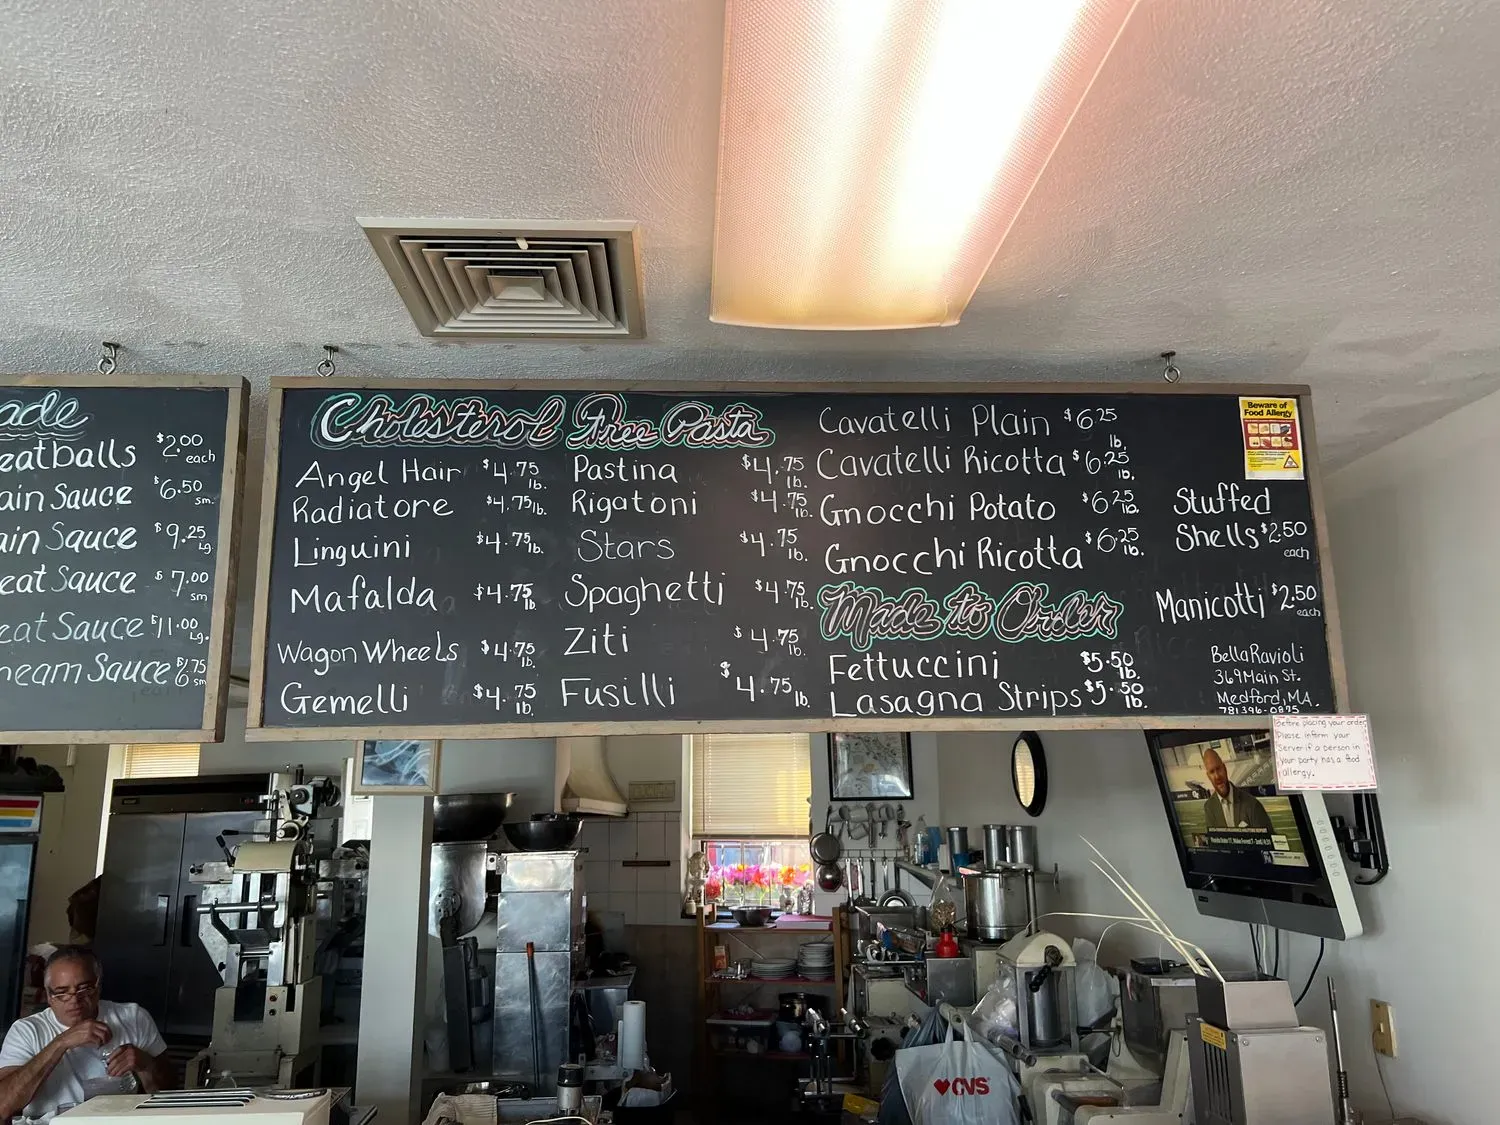 ade
eatballs $2.00 each
ain Sauce $6.50 sm.
ain Sauce $9.25 Lg.
eat Sauce $7.00 sm
eat Sauce $11.00 Lg.
ream Sauce $6.75 sm
Cholesterol Free Pasta
Angel Hair $4.75 lb.
Radiatore $4.75 lb.
Linguini $4.75 lb.
Mafalda $4.75 lb
Wagon Wheels $4.75 lb.
Gemelli $4.75 lb.
Pastina $4.75 lb.
Rigatoni $4.75 lb.
Stars $4.75 lb.
Spaghetti $4.75 lb.
Ziti $4.75 lb.
Fusilli $4.75 lb.
Cavatelli Plain $6.25 lb.
Cavatelli Ricotta $6.25 lb.
Gnocchi Potato $6.25 lb.
Gnocchi Ricotta $6.25 lb.
Made to Order
Fettuccini $5.50 lb.
Lasagna Strips $5.50 lb.
Beware of
Food Allergy
Stuffed
Shells $2.50 each
Manicotti $2.50 each
Bella Ravioli
369 Main St.
Medford, MA.
781 396-0875
Before placing your order
Please inform your
Server if a person in
your party has a food
allergy.
CVS